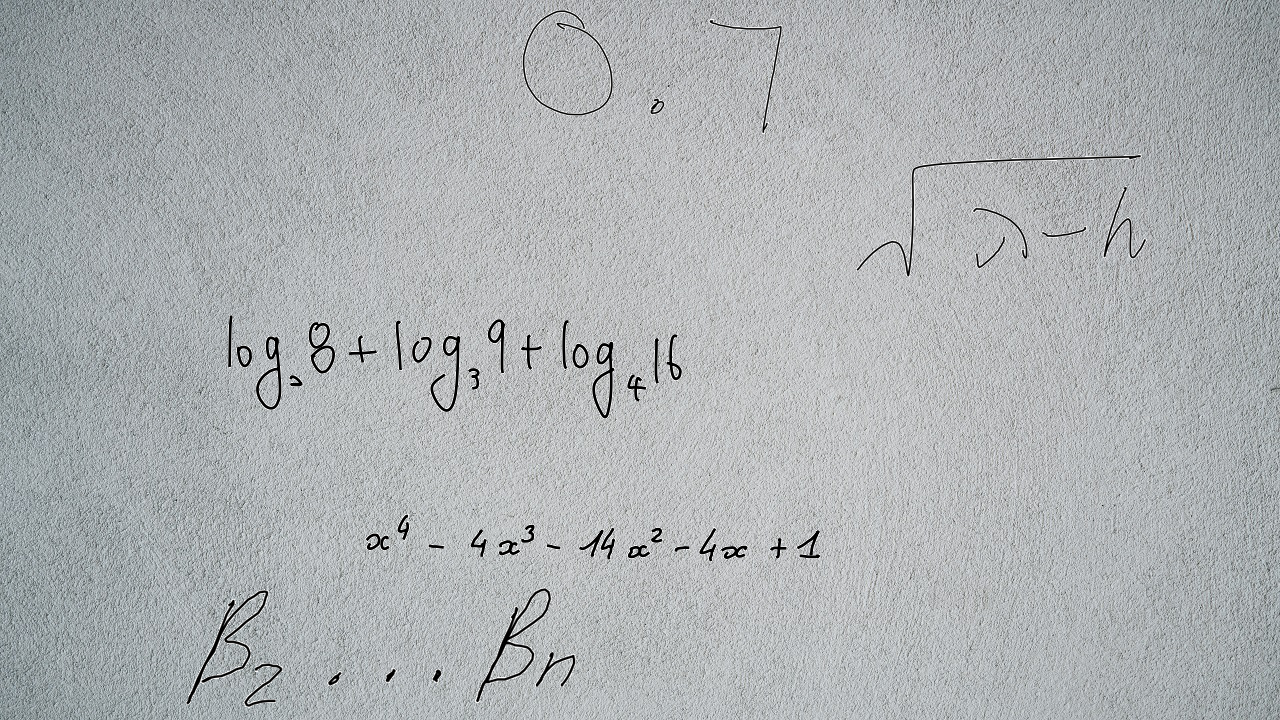 0.7
√(λ-h)
log₂8+log₃9+log₄16
x⁴ - 4x³ - 14x² - 4x + 1
β₂ . . . βₙ